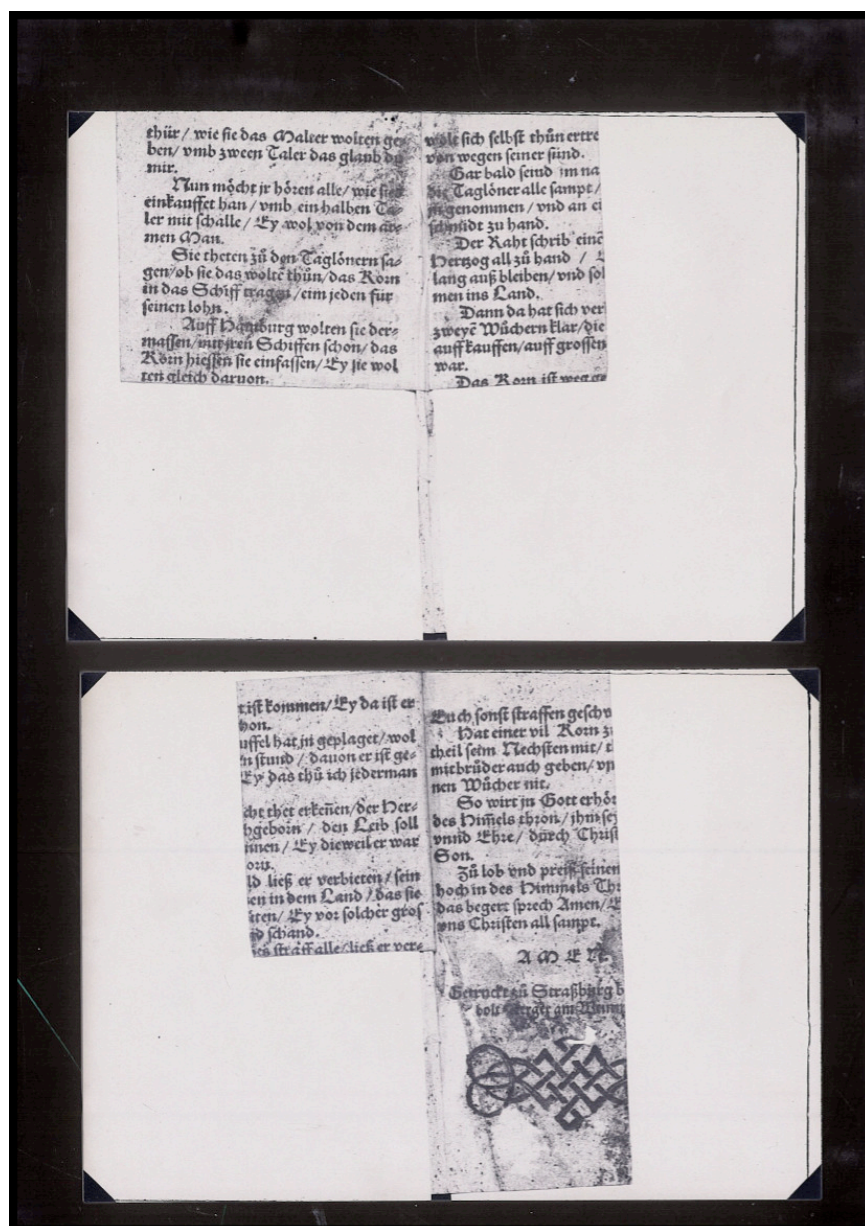 thür / wie sie das Malter wolten ge-
ben / vmb zween Taler das glaub du
mir.
Nun möcht jr hören alle / wie sies
einkauffet han / vmb ein halben Ta-
ler mit schalle / Ey wol von dem ar-
men Man.
Sie theten zů den Taglönern sa-
gen / ob sie das woltē thůn / das Korn
in das Schiff tragen / eim jeden für
seinen lohn.
Auff Hamburg wolten sie der-
massen / mit jren Schiffen schon / das
Korn hiessen sie einfassen / Ey sie wol
ten gleich daruon.
wolt sich selbst thůn ertre
von wegen seiner sünd.
Gar bald seind jm na
die Taglöner alle sampt /
genommen / vnd an ei
schmidt zu hand.
Der Raht schrib einē
Hertzog all zů hand /
lang auß bleiben / vnd sol
men ins Land.
Dann da hat sich ver
zweyē Wůchern klar / die
auff kauffen / auff grossen
war.
Das Korn ist weg ge
t ist kommen / Ey da ist er
hon.
uffel hat jn geplaget / wol
n stund / dauon er ist ge-
Ey das thů ich jederman
cht thet erkeñen / der Her-
hgeborn / den Leib soll
nnen / Ey dieweil er war
orn.
ld ließ er verbieten / sein
en in dem Land / das sie
ten / Ey vor solcher gros
d schand.
es straff alle / ließ er ver-
Euch sonst straffen geschw
Hat einer vil Korn zu
theil seim Nechsten mit / t
mitbrůder auch geben / vn
nen Wůcher nit.
So wirt jn Gott erhör
des Him̄els thron / jhm sej
vnnd Ehre / durch Christ
Son.
Zů lob vnd preiß seinen
hoch in des Himmels Thr
das begert sprech Amen / E
vns Christen all sampt.
A M E N.
Getruckt zů Straßburg b
bolt Berger am